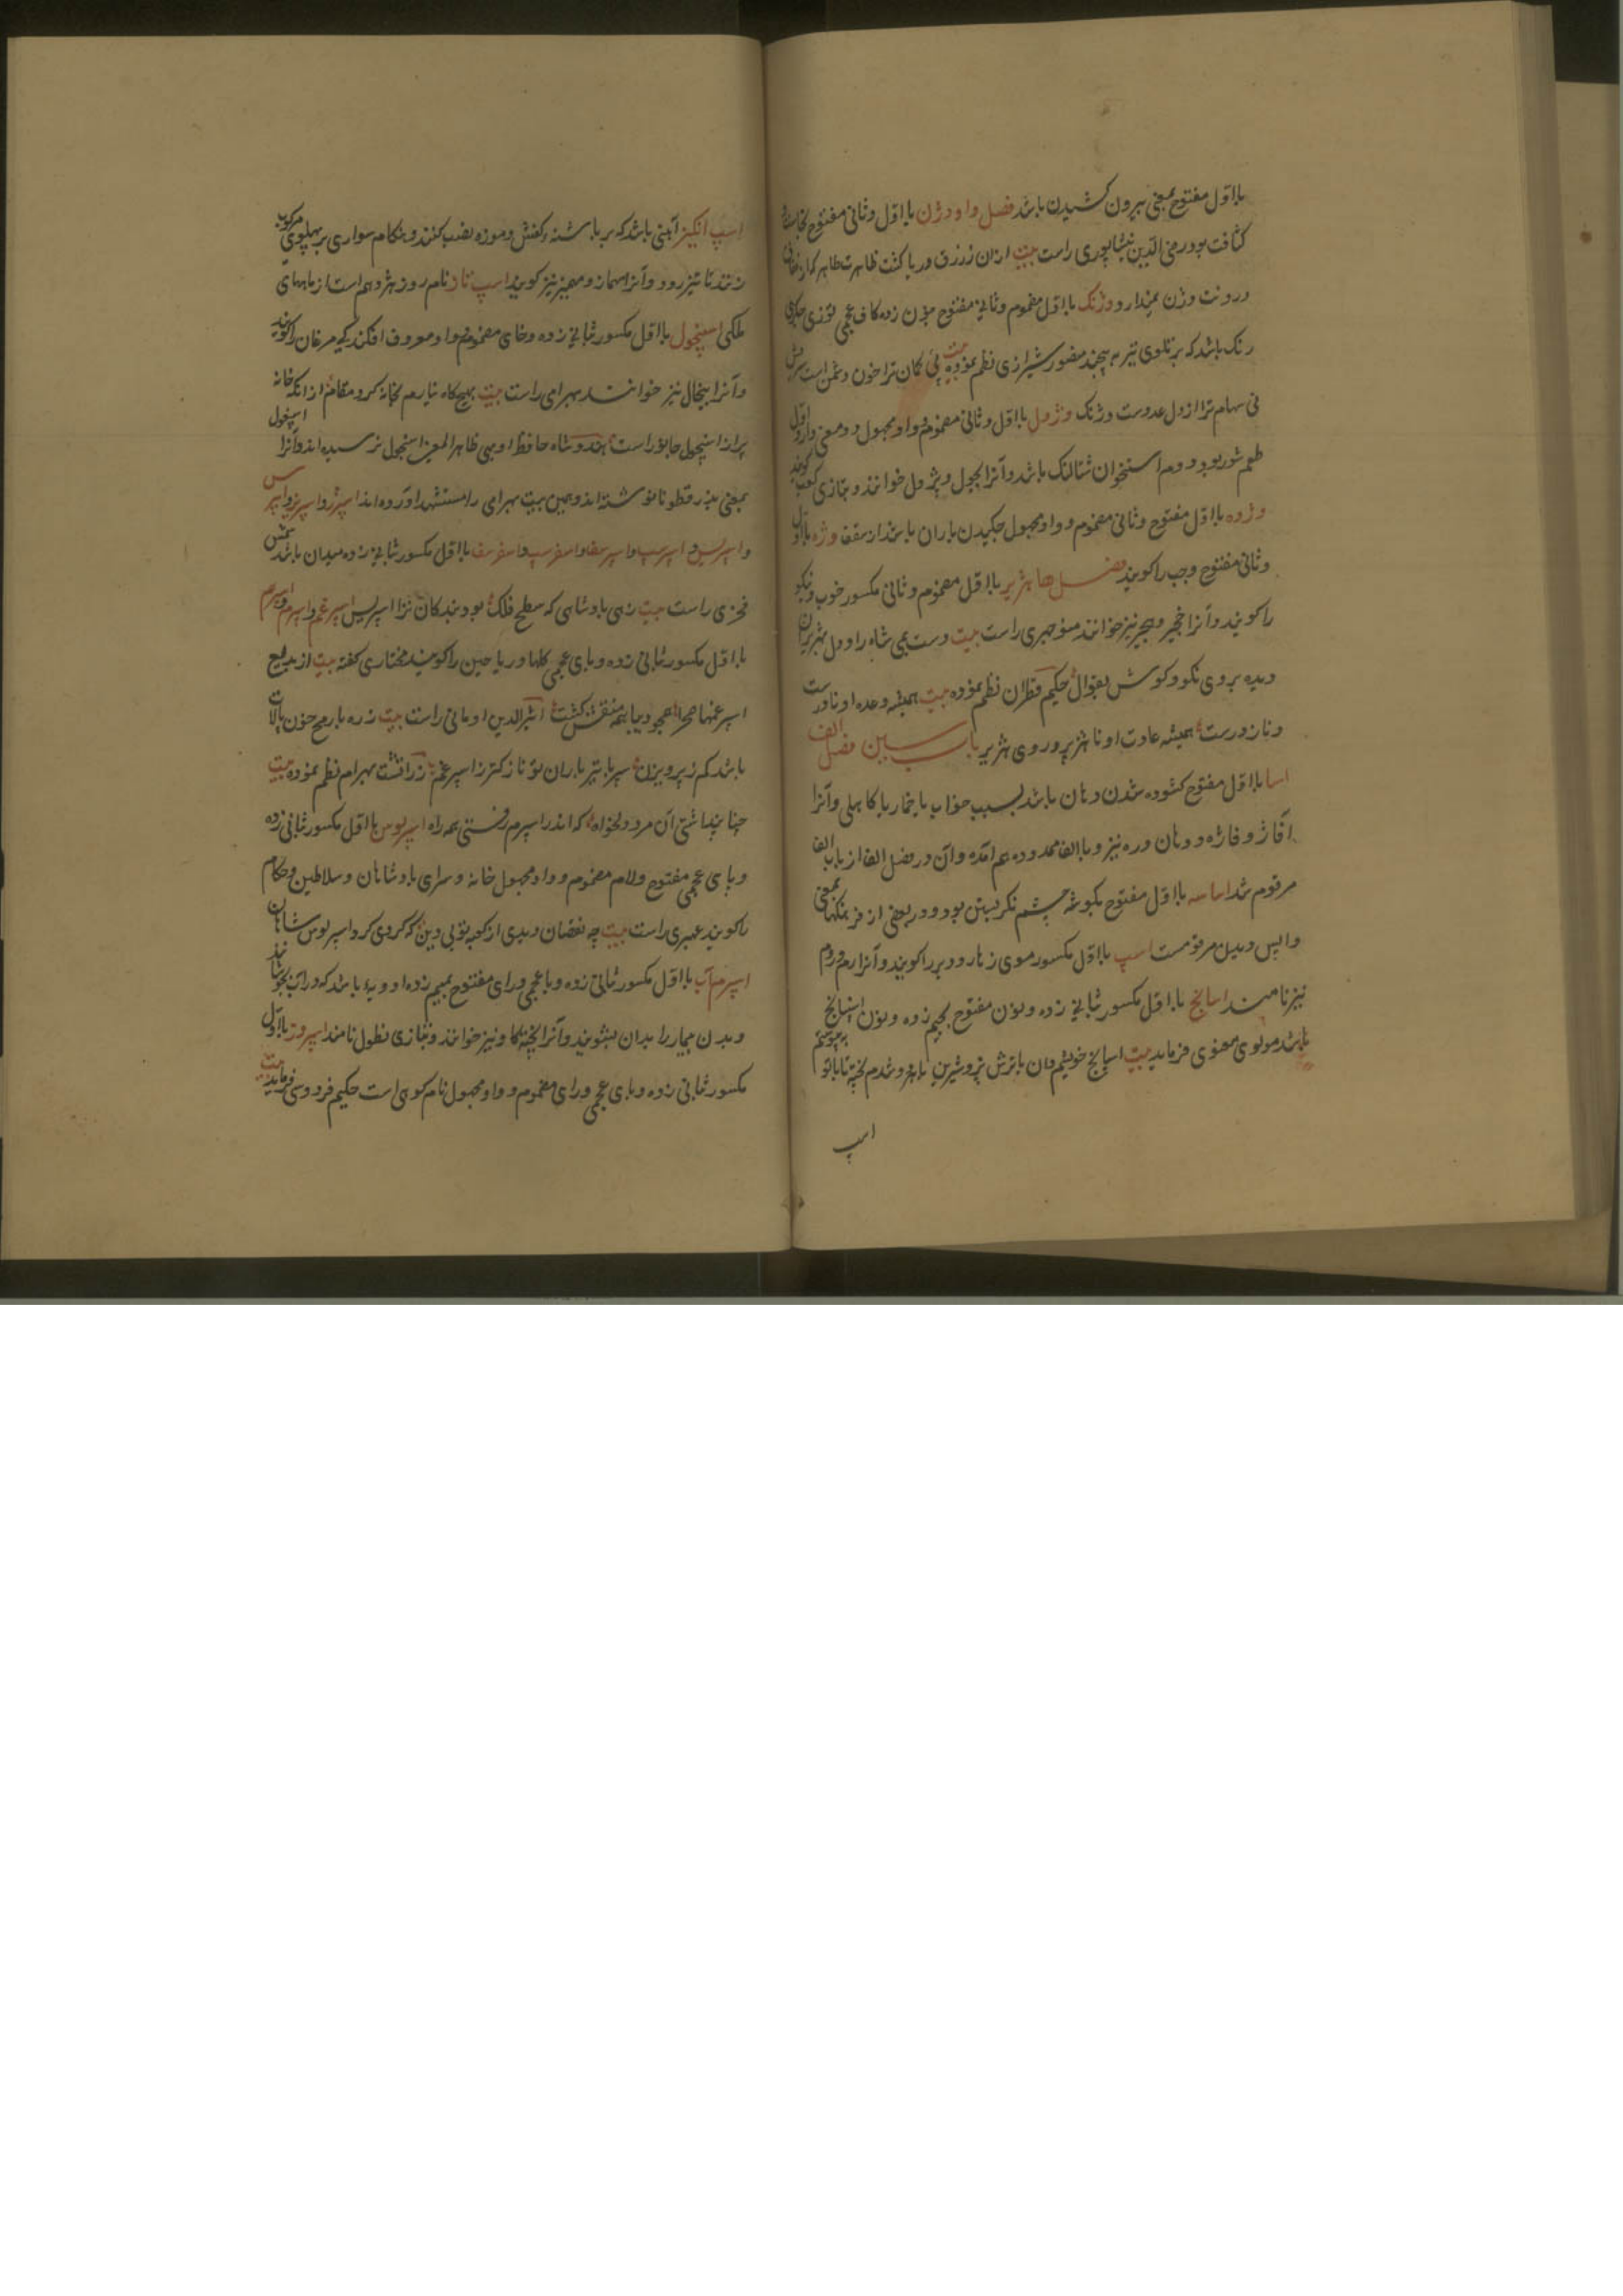 بااول مفتوح بمعنی بیرون کشیدن باشد فصل واو وژن بااول وثانی مفتوح
کثافت بود رضی الدین نیشاپوری راست بیت ازان زرزق وریا کشت ظاهرت طاهر که از
درونت وژن بمیندارد وژنک بااول مضموم وثانی مفتوح بنون زده کاف عجمی توزی
رنک باشد که برتلوی تیر به پیچند منصور شیرازی نظم نموده بیت پی کمان ترا خون دشمن است سریش
نی سهام ترا از دل عدوست وژنک وژول بااول وثانی مضموم وواو مجهول دو معنی دارد اول
طعم شور بود دوم استخوان شتالنک باشد وآنرا بجول وپژول خوانند و بتازی کعب کویند
وژوه بااول مفتوح وثانی مضموم وواو مجهول چکیدن باران باشد از سقف وژه بااول
وثانی مفتوح وجب را کویند فصل ها هژیر بااول مضموم وثانی مکسور خوب ونیکو
را کویند وآنرا خجیر وهجیر نیز خوانند منوچهری راست بیت دست بمی شاه را ودل بهژیران
دیده بروی نکو وکوش بقوال حکیم قطران نظم نموده بیت همیشه وعده او نادرست
ونازدرست همیشه عادت او ناهژیر وروی هژیر باب سین فصل الف
اسا بااول مفتوح کشوده شدن دهان باشد بسبب خواب یا خمار یا کاهلی وآنرا
آفاژ وفاژه ودهان دره نیز وباالف ممدوده هم آمده وآن در فصل الف از باب الف
مرقوم شد اساسه بااول مفتوح بکوشه چشم نکریستن بود ودر بعضی از فرهنکها بمعنی
واپس دیدن مرقومست اسپ بااول مکسور موی زهار ودبر را کویند وآنرا رم وروم
نیز نامند اسپانخ بااول مکسور بثانی زده ونون مفتوح بجیم زده ونون اسپنانخ
باشد مولوی معنوی فرماید بیت اسپانخ خویشم دان باترش پز وشیرین باهر دو شدم پخته تا باتو بپیوستم
اسپ
اسپ انکیز آهنی باشد که بر پاشنه کفش وموزه نصب کنند وهنکام سواری بر پهلوی مرکوب
زنند تا تیز رود وآنرا مهماز ومهمیز نیز کویند اسپ ناز نام روز هژدهم است از ماههای
ملکی اسپنچول بااول مکسور بثانی زده وخای مضموم واو معروف افکندکی مرغان را کویند
وآنرا پیخال نیز خوانند بهرامی راست بیت هیچ کاه نیارم بخانه کرد مقام از آنکه خانه
پر از اسپنچول جانور است هندوشاه حافظ اوبهی ظاهرا بمعنی اسپنجول نرسیده اند وآنرا اسپغول
بمعنی بذر قطونا نوشته اند وهمین بیت بهرامی را مستشهد آورده اند اسپرز واسپریز واسپرس
واسپریس واسپرسپ واسپرسف واسفرسپ واسفرسف بااول مکسور بثانی زده میدان باشد شمس
فخری راست بیت زهی پادشاهی که سطح فلک بود بندکان ترا اسپریس اسپرغم واسپرم واسپرهم
بااول مکسور بثانی زده وبای عجمی کلها وریاحین را کویند مختاری کفته بیت از بدیع
اسپرغمها صحرا همچو دیبا همه منقش کشت اثیرالدین اومانی راست بیت زره با رمح چون بالات
باشد کم ز پرویزن سپر با تیر باران تو نازکتر ز اسپرغم زراتشت بهرام نظم نموده بیت
چنان پنداشتی آن مرد دلخواه که اندر اسپرم رفستی همه راه اسپرلوس بااول مکسور ثانی زده
وبای عجمی مفتوح ولام مضموم وواو مجهول خانه وسرای پادشاهان وسلاطین وحکام
را کویند عمیری راست بیت چه نقصان دیدی از کعبه تو بی دین که کردی کرد اسپرلوس شاهان
اسپرم آب بااول مکسور ثانی زده وباء عجمی ورای مفتوح بمیم زده ادویه باشد که در آب بجوشانند
وبدن بیمار را بدان بشویند وآنرا پخته کاو نیز خوانند وبتازی نطول نامند اسپروز بااول
مکسور بثانی زده وبای عجمی ورای مضموم وواو مجهول نام کوهی است حکیم فردوسی فرماید بیت